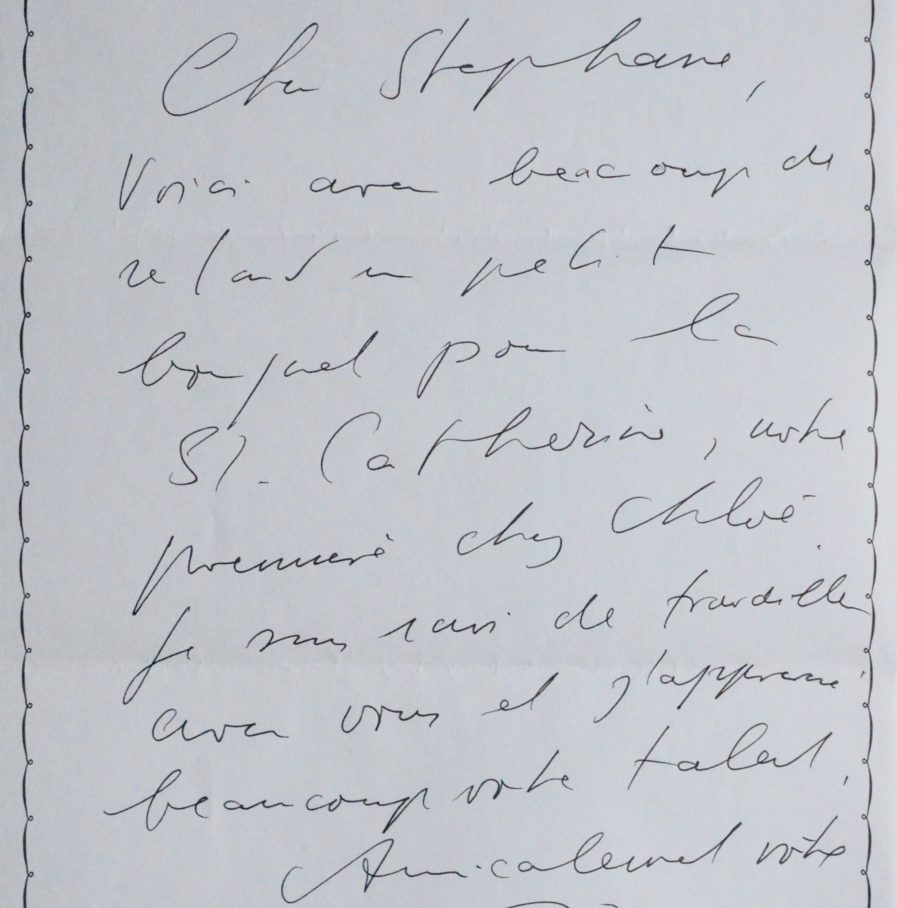 Cher Stephane,
Voici avec beaucoup de
retard un petit
bouquet pour la
St. Catherine, votre
première chez Chloé.
Je suis ravi de travailler
avec vous et j'apprécie
beaucoup votre talent.
Amicalement votre